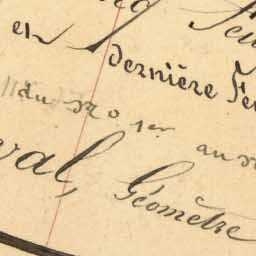 en dernière Fe
du no 1er au
val, Géomètre